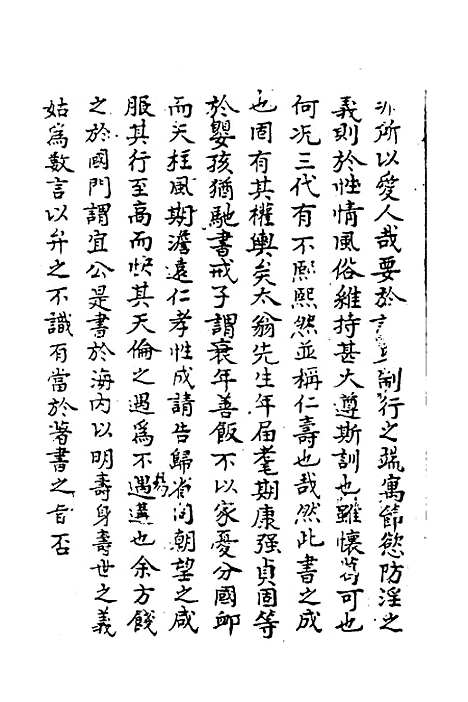 非所以愛人哉要於言宣制行之端寓節慾防淫之
義則於性情風俗維持甚大遵斯訓也雖懷葛可也
何况三代有不熙熙然並稱仁壽也哉然此書之成
也固有其權輿矣太翁先生年届耄期康强貞固等
於嬰孩猶馳書戒子謂衰年善飯不以家憂分國卹
而天柱風期澹遠仁孝性成請告歸省同朝望之咸
服其行至高而快其天倫之遇爲不遇遘也余方餞
之於國門謂宜公是書於海内以明壽身壽世之義
姑爲数言以弁之不識有當於著書之旨否